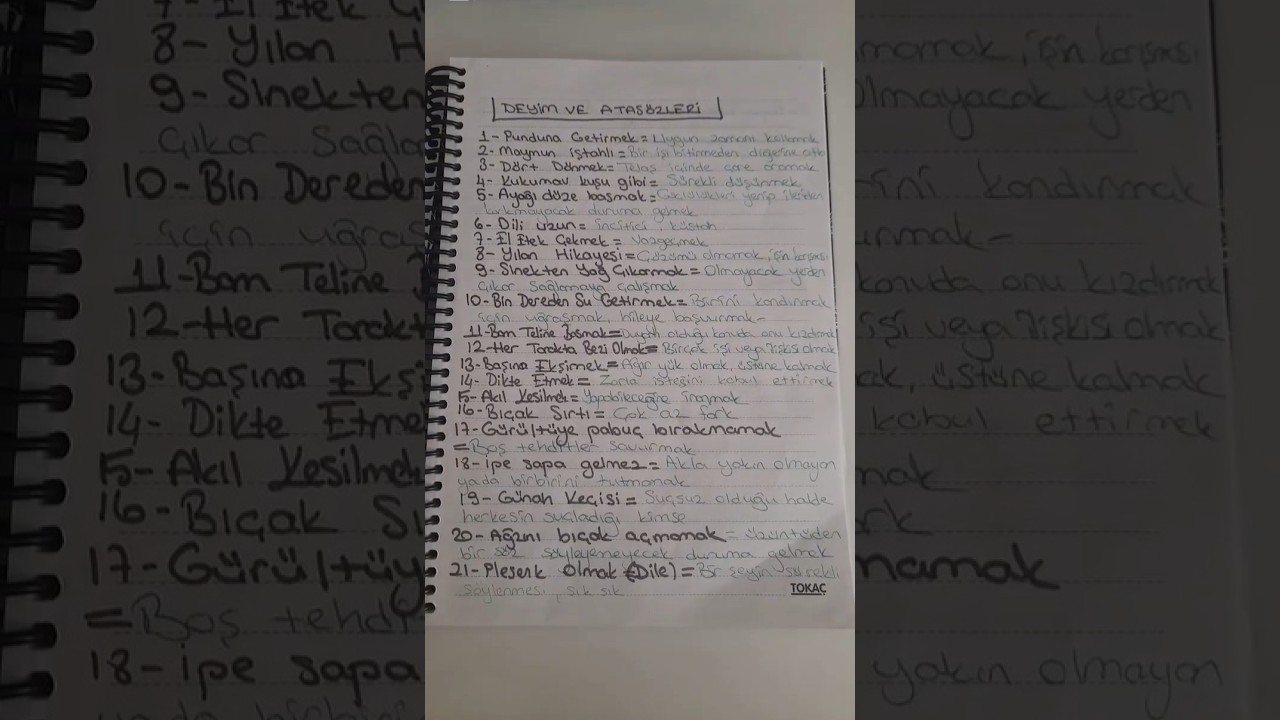 DEYİM VE ATASÖZLERİ
1- Punduna Getirmek = Uygun zamanı kollamak
2- Maymun iştahlı = Bir işi bitirmeden diğerine
3- Dört Dönmek = Telaş içinde çare aramak
4- Kukumav kuşu gibi = Sürekli düşünmek
5- Ayağı düze basmak = Güçlükleri yenip ileriden
korkmayacak duruma gelmek
6- Dili uzun = incitici, küstah
7- El Etek Çekmek = Vazgeçmek
8- Yılan Hikayesi = Çözümü olmamak, işin karışması
9- Sinekten Yağ Çıkarmak = Olmayacak yerden
Çıkar Sağlamaya çalışmak
10- Bin Dereden Su Getirmek = Birini kandırmak
için uğraşmak, hileye başvurmak-
11- Bam Teline Basmak = olduğu konuda onu kızdırmak
12- Her Tarakta Bezi Olmak = Birçok işi veya ilişkisi olmak
13- Başına Ekşimek = Ağır yük olmak, üstüne kalmak
14- Dikte Etmek = Zorla isteğini kabul ettirmek
15- Akıl Kesilmek = Yapabileceğine inanmak
16- Bıçak Sırtı = Çok az fark
17- Gürültüye pabuç bırakmamak
= Boş tehditler savurmak
18- ipe sapa gelmez = Akla yakın olmayan
yada birbirini tutmamak
19- Günah Keçisi = Suçsuz olduğu halde
herkesin suçladığı kimse
20- Ağzını bıçak açmamak = üzüntüden
bir söz söyleyemeyecek duruma gelmek
21- Plesenk Olmak (Dile) = Bir şeyin sürekli
söylenmesi, sık sık
TOKAÇ